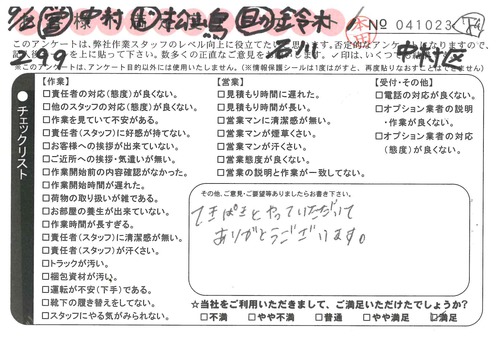 様 中村 松島 鈴木
No 041023
このアンケートは、弊社作業スタッフのレベル向上に役立てたい
を上に貼って下さい。数多くの正直なご意見を
中村区
299
※このアンケートは、アンケート目的以外には使用いたしません。(※情報保護シールは1度はがすと、再度貼りなおすことはできません。)
チェックリスト
【作業】
□責任者の対応(態度)が良くない。
□他のスタッフの対応(態度)が良くない。
□作業を見ていて不安がある。
□責任者(スタッフ)に好感が持てない。
□お客様への挨拶が出来ていない。
□ご近所への挨拶・気遣いが無い。
□作業開始前の内容確認がなかった。
□作業開始時間が遅れた。
□荷物の取り扱いが雑である。
□お部屋の養生が出来ていない。
□作業時間が長すぎる。
□責任者(スタッフ)に清潔感が無い。
□責任者(スタッフ)が汗くさい。
□トラックが汚い。
□梱包資材が汚い。
□運転が不安(下手)である。
□靴下の履き替えをしてない。
□スタッフにやる気がみられない。
【営業】
□見積もり時間に遅れた。
□見積もり時間が長い。
□営業マンに清潔感が無い。
□営業マンが煙草くさい。
□営業マンが汗くさい。
□営業態度が良くない。
□営業の説明と作業が一致してない。
【受付・その他】
□電話の対応が良くない。
□オプション業者の説明
・作業が良くない。
□オプション業者の対応
(態度)が良くない。
その他、ご意見・ご要望等ありましたらお書き下さい。
てきぱきとやっていただいて
ありがとうございます。
☆当社をご利用いただきまして、ご満足いただけたでしょうか?
□不満 □やや不満 □普通 □やや満足 □満足